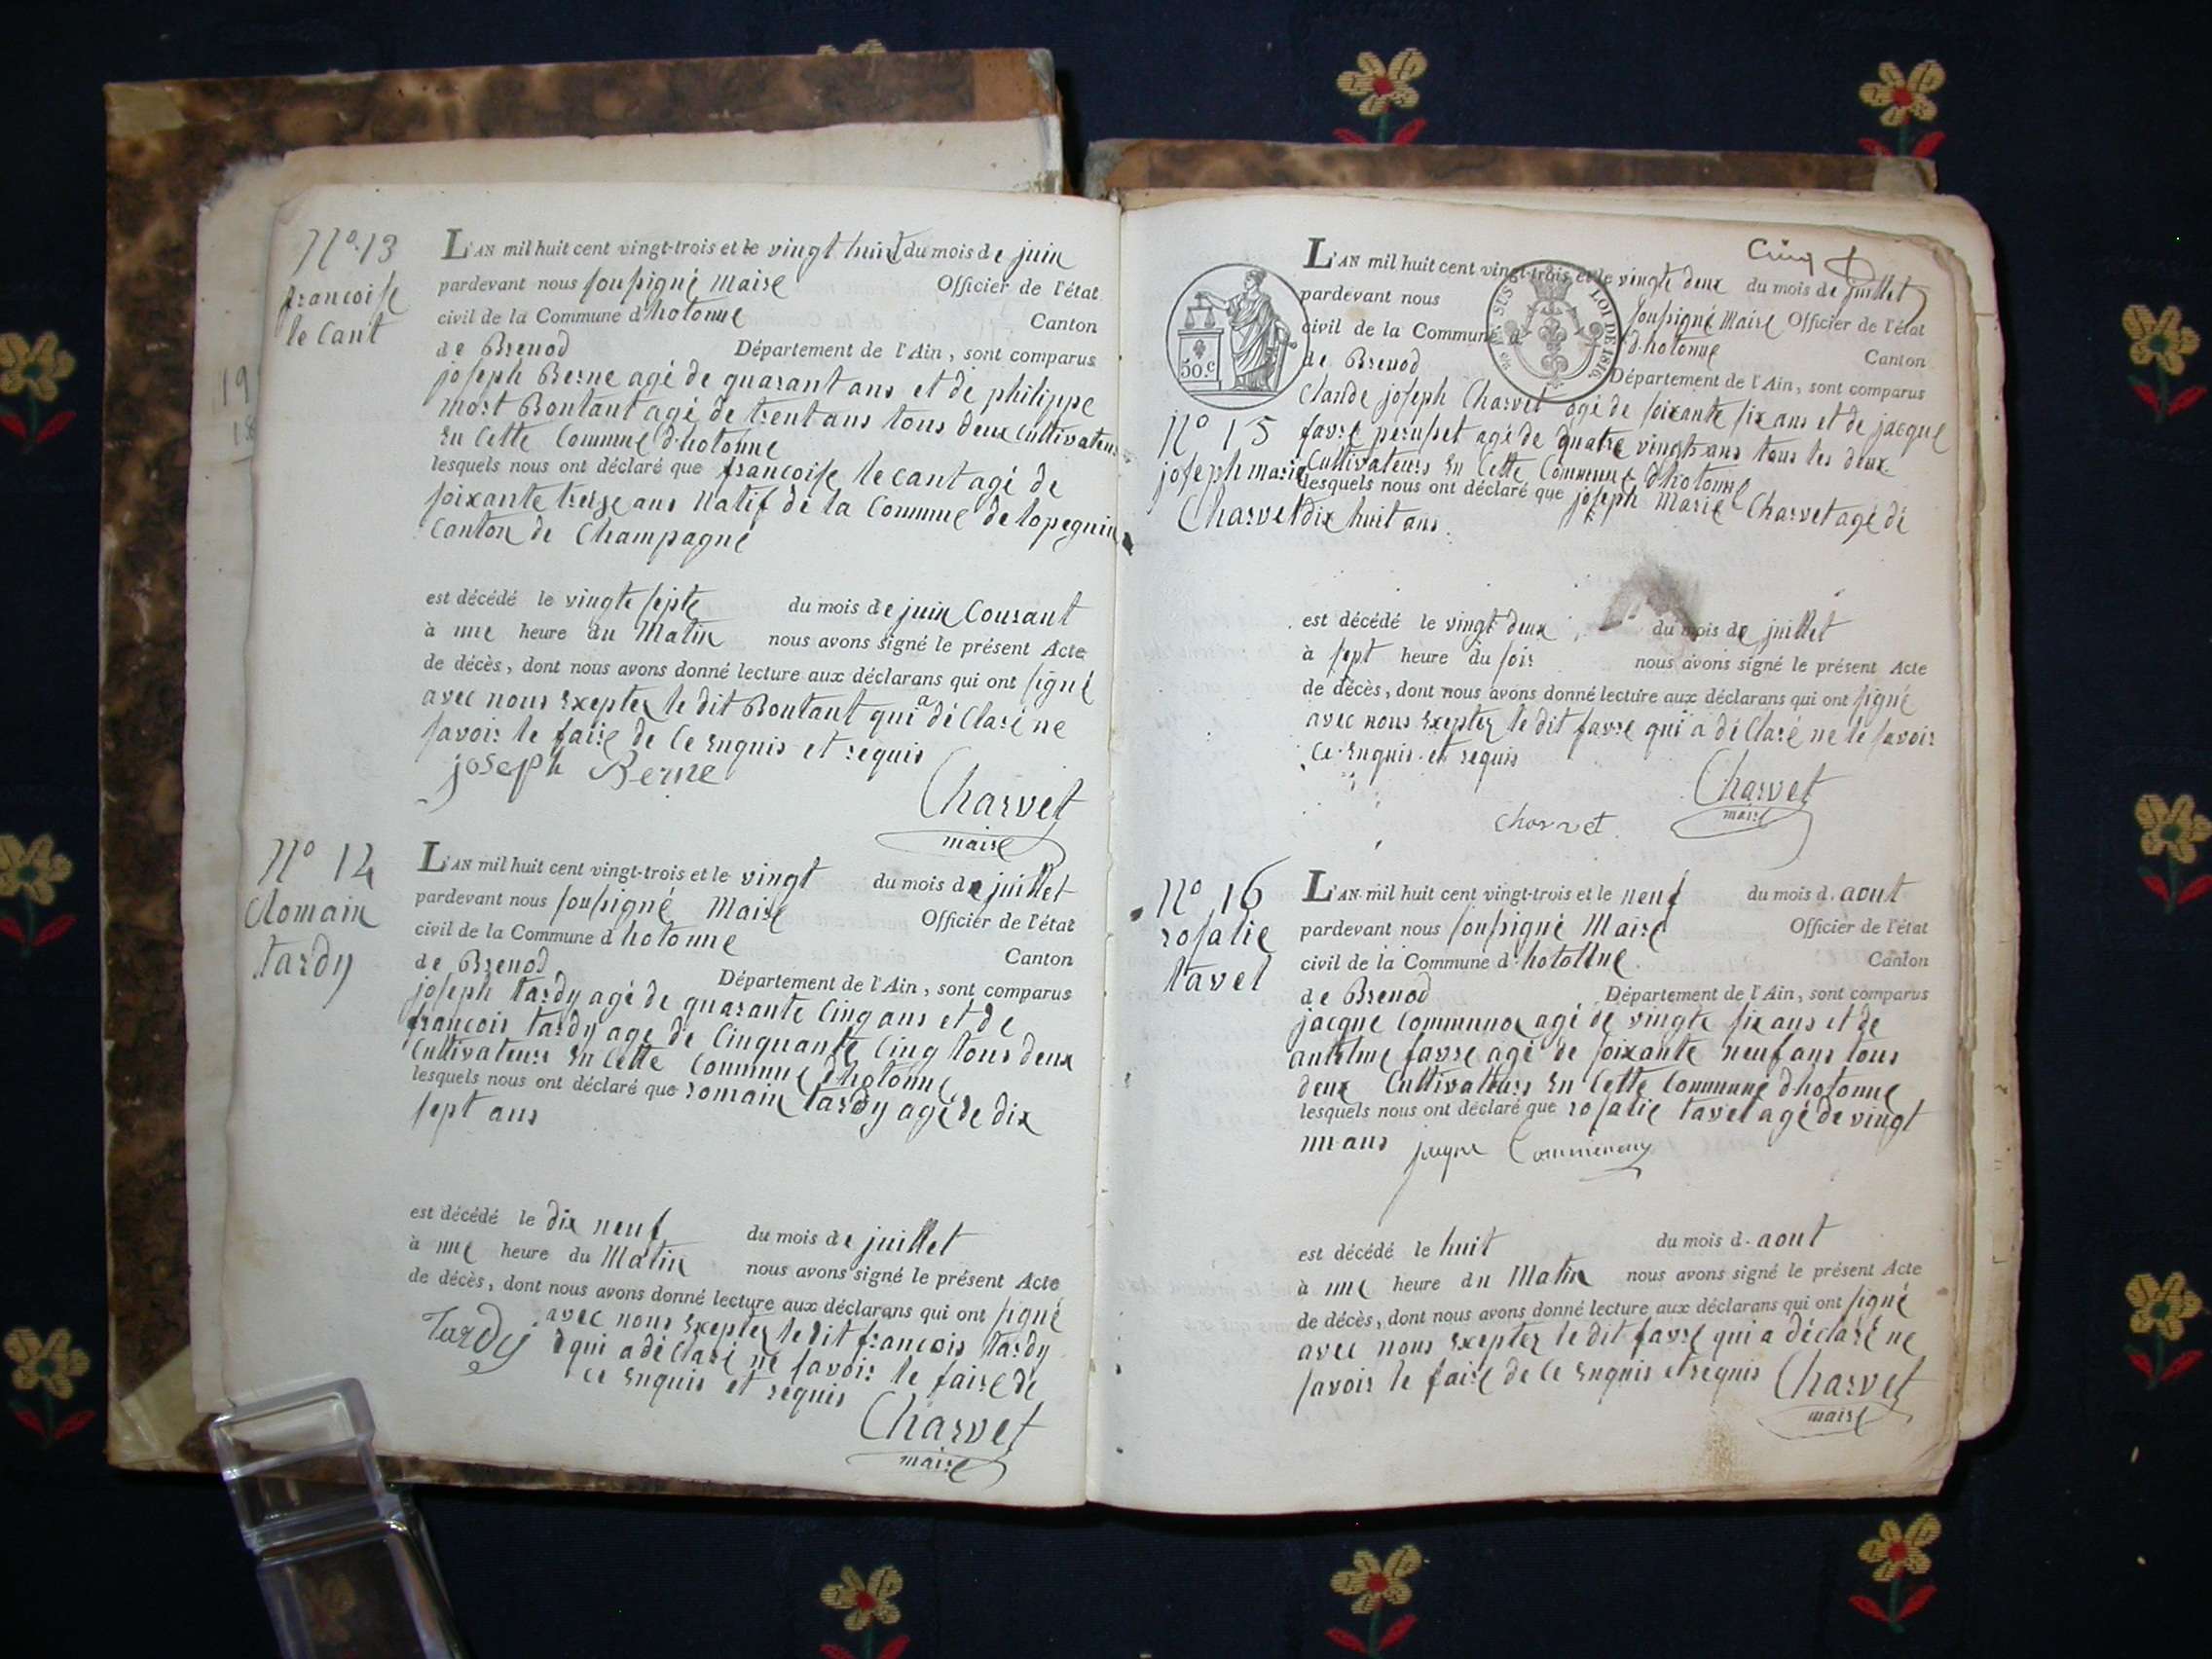 N°. 13
francoise
le Cant
L'AN mil huit cent vingt-trois et le vingt huit du mois de juin
pardevant nous soussigné Maire Officier de l'état
civil de la Commune d'hotonne Canton
de Brenod Département de l'Ain, sont comparus
joseph Berne agé de quarant ans et de philippe
mort Boutant agé de trent ans tous deux Cultivateurs
En Cette Commune d'hotonne
lesquels nous ont déclaré que francoise le cant agé de
soixante treize ans Natif de la Commune de lopegnin
Canton de Champagne
est décédé le vingte septe du mois de juin Courant
à une heure du Matin nous avons signé le présent Acte
de décès, dont nous avons donné lecture aux déclarans qui ont signé
avec nous Exepter le dit Boutant qui a déClaré ne
savoir le faire de Ce Enquis et requis
joseph Berne
Charvet
maire
N° 14
Romain
tardy
L'AN mil huit cent vingt-trois et le vingt du mois de juillet
pardevant nous soussigné Maire Officier de l'état
civil de la Commune d hotonne Canton
de Brenod Département de l'Ain, sont comparus
joseph tardy agé de quarante Cinq ans et de
francois tardy age de Cinquante Cinq tous deux
Cultivateurs En Cette Commune d'hotonne
lesquels nous ont déclaré que romain tardy agé de dix
sept ans
est décédé le dix neuf du mois de juillet
à une heure du Matin nous avons signé le présent Acte
de décès, dont nous avons donné lecture aux déclarans qui ont signé
avec nous Exepter le dit francois tardy
Tardy qui a déClaré ne savoir le faire de
Ce Enquis et requis
Charvet
maire
Cinq
50.c
SUS
LOI DE 1816.
L'AN mil huit cent vingt-trois et le vingt deux du mois de juillet
pardevant nous soussigné Maire Officier de l'état
civil de la Commune d d'hotonne Canton
de Brenod Département de l'Ain, sont comparus
Claude joseph Charvet agé de soixante six ans et de jacque
N° 15
joseph marie
Charvet
favre perusset agé de quatre vingts ans tous les deux
Cultivateurs En Cette Commune d'hotonne
lesquels nous ont déclaré que joseph Marie Charvet agé de
dix huit ans
est décédé le vingt deux du mois de juillet
à sept heure du soir nous avons signé le présent Acte
de décès, dont nous avons donné lecture aux déclarans qui ont signé
avec nous Exepter le dit favre qui a déClaré ne le savoir
Ce Enquis et requis
Charvet
maire
charvet
N° 16
rosalie
tavel
L'AN mil huit cent vingt-trois et le neuf du mois d. aout
pardevant nous soussigné Maire Officier de l'état
civil de la Commune d'hotonne Canton
de Brenod Département de l'Ain, sont comparus
jacque Communox agé de vingte six ans et de
antelme favre agé de soixante neuf ans tous
deux Cultivateurs En Cette Commune d'hotonne
lesquels nous ont déclaré que rosalie tavel agé de vingt
un ans
est décédé le huit du mois d. aout
à une heure du Matin nous avons signé le présent Acte
de décès, dont nous avons donné lecture aux déclarans qui ont signé
avec nous Exepter le dit favre qui a déclaré ne
savoir le faire de Ce Enquis et requis
Charvet
maire